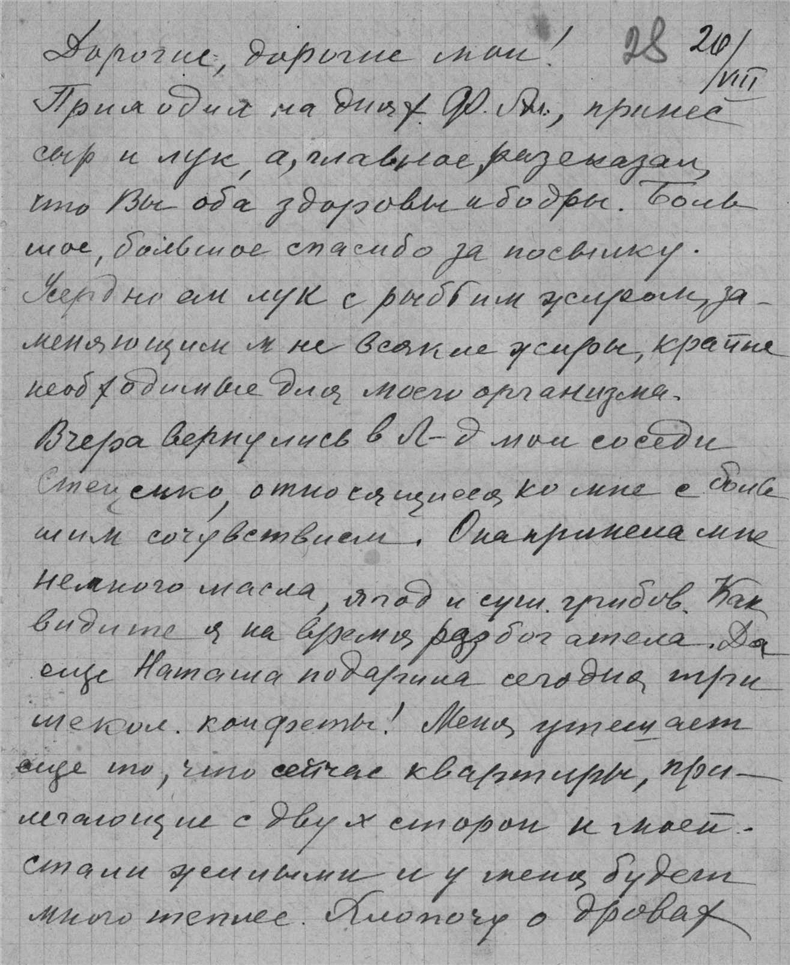 28 26/VIII
Дорогие, дорогие мои!
Приходил на днях Ф. Ли., принес
сыр и лук, а, главное, разсказал,
что Вы оба здоровы и бодры. Боль
шое, большое спасибо за посылку.
Усердно ем лук с рыбьим жиром, за-
меняющим мне всякие жиры, крайне
необходимые для моего организма.
Вчера вернулись в Л-д мои соседи
Стеценко, относящиеся ко мне с боль
шим сочувствием. Она принесла мне
немного масла, ягод и суш. грибов. Как
видите я на время разбогатела. Да
еще Наташа подарила сегодня три
шокол. конфеты! Меня утешает
еще то, что сейчас квартиры, при-
легающие с двух сторон к моей.
стали жилыми и у меня будет
много теплее. Хлопочу о дровах